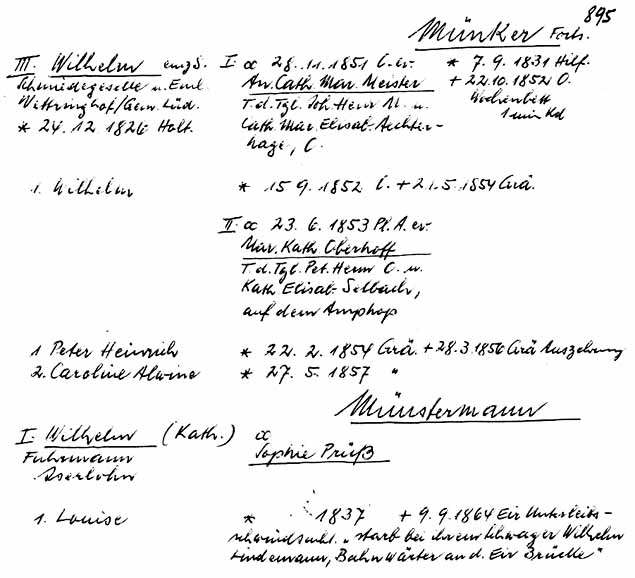 895
Münker Forts.
III. Wilhelm einz S. I. ∞ 28.11.1851 C. er. * 7.9.1831 Hilf.
Schmiedegeselle u. Eml. An. Cath. Mar. Meister + 22.10.1852 O.
Wettringhof/Gem. Lüd. T.d. Tgl. Joh. Herm M. u. Wochenbett
* 24.12.1826 Holt. Cath. Mar. Elisab. Aechter- 1 min Kd
hage, C.
1. Wilhelm * 15 9. 1852 C. + 21.5.1854 Grä.
II. ∞ 23. 6. 1853 Pl. A. er.
Mar. Kath Oberhoff
T.d. Tgl. Pet. Herm O. u.
Kath Elisab. Selbach,
auf dem Amphop
1 Peter Heinrich * 22. 2. 1854 Grä. + 28.3.1856 Grä Auszehrung
2. Caroline Alwine * 27. 5. 1857 "
Münstermann
I. Wilhelm (Kath.) ∞
Fuhrmann Sophie Prüß
Iserlohn
1. Louise * 1837 + 9.9.1864 Eir Unterleibs-
schwindsucht. "starb bei ihrem Schwager Wilhelm
Lindemann, Bahnwärter an d. Eir Brücke"